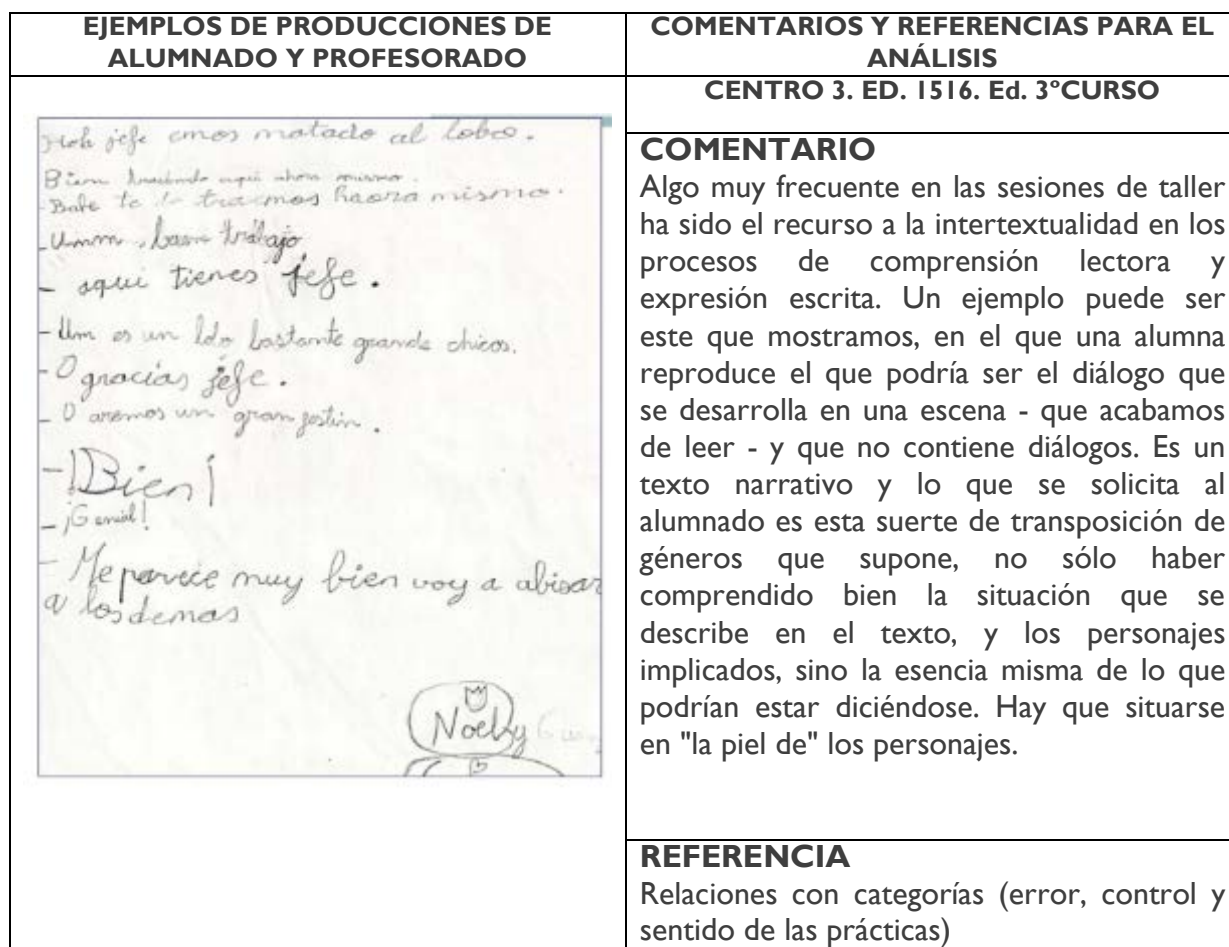 EJEMPLOS DE PRODUCCIONES DE
ALUMNADO Y PROFESORADO
jefe emos matado al lobo.
Bien aqui ahora mismo.
- te lo traemos haora mismo.
- Umm, trabajo
- aqui tienes jefe.
- Um es un lobo bastante grande chicos.
- O gracias jefe.
- O aremos un gran festin.
- ¡Bien!
- ¡Genial!
- Me parece muy bien voy a abisar
a los demas
Noelby
COMENTARIOS Y REFERENCIAS PARA EL
ANÁLISIS
CENTRO 3. ED. 1516. Ed. 3ºCURSO
COMENTARIO
Algo muy frecuente en las sesiones de taller
ha sido el recurso a la intertextualidad en los
procesos de comprensión lectora y
expresión escrita. Un ejemplo puede ser
este que mostramos, en el que una alumna
reproduce el que podría ser el diálogo que
se desarrolla en una escena - que acabamos
de leer - y que no contiene diálogos. Es un
texto narrativo y lo que se solicita al
alumnado es esta suerte de transposición de
géneros que supone, no sólo haber
comprendido bien la situación que se
describe en el texto, y los personajes
implicados, sino la esencia misma de lo que
podrían estar diciéndose. Hay que situarse
en "la piel de" los personajes.
REFERENCIA
Relaciones con categorías (error, control y
sentido de las prácticas)